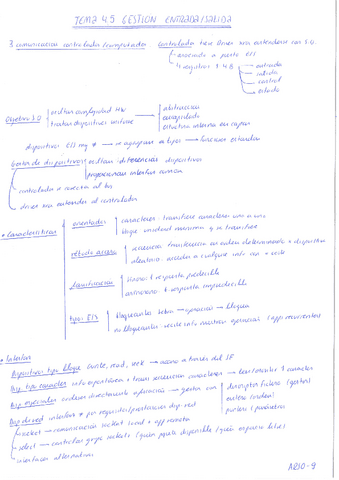 TEMA 4.5 GESTION ENTRADA/SALIDA
3. comunicacion controlador/computador controlador tiene Driver para entenderse con S.O.
asociado a puerto E/S
4 registros 1-4 B
entrada
salida
control
estado
Objetivo S.O
ocultan complejidad HW
tratar dispositivos uniforme
abstraccion
encapsulado
estructura interna en capas
dispositivos E/S muy ≠ → se agrupan en tipos → funciones estandar
Gestor de dispositivos
ocultan diferencias dispositivos
proporcionan interfaz comun
controlador se conecta al bus
driver para entender al controlador
• Características
orientados
caracteres: transfiere caracteres uno a uno
bloque: unidad minima q se transfiere
método acceso
secuencial: transferencia en orden determinado x dispositivo
aleatorio: acceder a cualquier
sincrono: t respuesta predecible
asincrono: t respuesta impredecible
tipo E/S
bloqueantes
operación → bloquea
no bloqueantes
• Interfaz
Dispositivos tipo bloque write, read, seek → acceso a traves del SF
Disp. tipo caracter
secuencia caracteres → leer/escribir 1 caracter
Disp especiales ordenan directamente operación → gestion con
descriptor fichero (gestor)
entero (orden)
puntero (parámetros)
Disp de red interfaz ≠ por requisitos/prestaciones disp red
socket → comunicación socket local + app remota
select → controlar grupo sockets (quién paquete disponible / quién espacio libre)
interfaces alternativas
ARSO-9